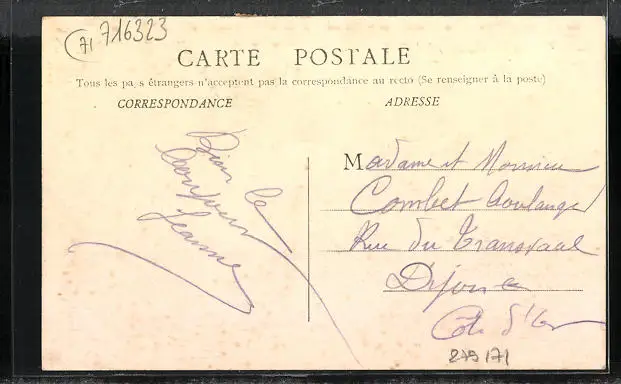 (71 716323
CARTE POSTALE
Tous les pays étrangers n'acceptent pas la correspondance au recto (Se renseigner à la poste)
CORRESPONDANCE
ADRESSE
Bien le
bonjour
Jeanne
Madame et Monsieur
Combet Boulanger
Rue du Transvaal
Dijon
Côte d'Or
279 171